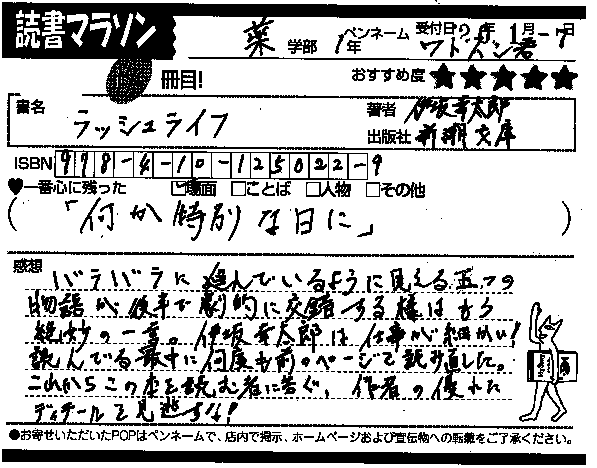 読書マラソン
薬 学部 1年 ペンネーム ワトスン君 受付日 年1月 7日
冊目! おすすめ度★★★★★
書名 ラッシュライフ 著者 伊坂幸太郎
出版社 新潮文庫
ISBN 978-4-10-125022-9
♥一番心に残った ☑場面 □ことば □人物 □その他
(「何か特別な日に」)
感想
バラバラに進んでいるように見える五つの
物語が後半で劇的に交錯する様はもう
絶妙の一言。伊坂幸太郎は仕事が細かい!
読んでいる最中に何度も前のページで読み直した。
これからこの本を読む者に告ぐ、作者の優れた
ディテールを見逃すな!
●お寄せいただいたPOPはペンネームで、店内で掲示、ホームページおよび宣伝物への転載をご了承ください。